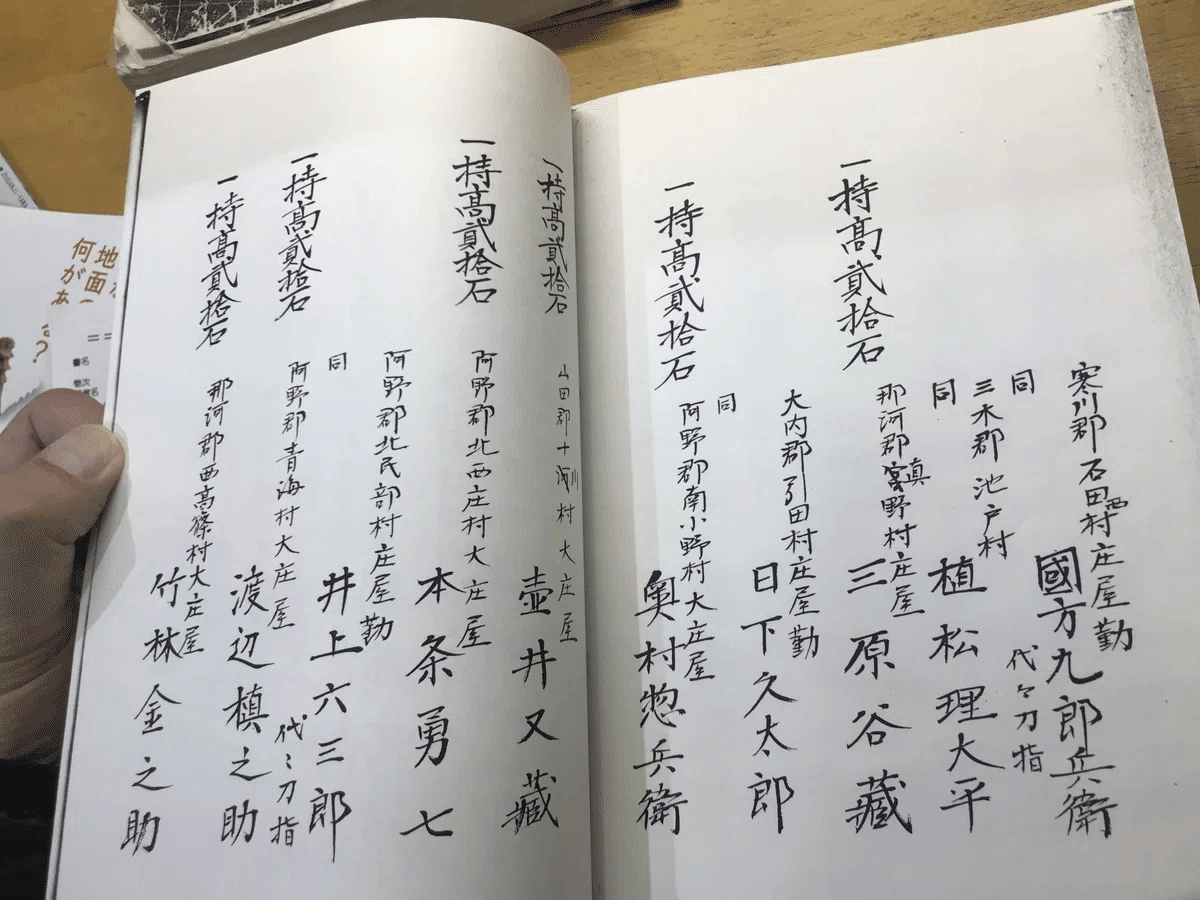 寒川郡石田西村庄屋勤
國方九郎兵衞
同
代々刀指
三木郡池戸村
植松理大平
同
一持高貳拾石
那河郡真野村庄屋
三原谷藏
大内郡引田村庄屋勤
日下久太郎
同
一持高貳拾石
阿野郡南小野村大庄屋
奥村惣兵衞
一持高貳拾石
山田郡十川村大庄屋
壺井又藏
一持高貳拾石
阿野郡北西庄村大庄屋
本条勇七
阿野郡北民部村庄屋勤
井上六三郎
同
代〻刀指
一持高貳拾石
阿野郡青海村大庄屋
渡辺槙之助
一持高貳拾石
那河郡西高篠村大庄屋
竹林金之助
地面の
何があ
書名
巻次